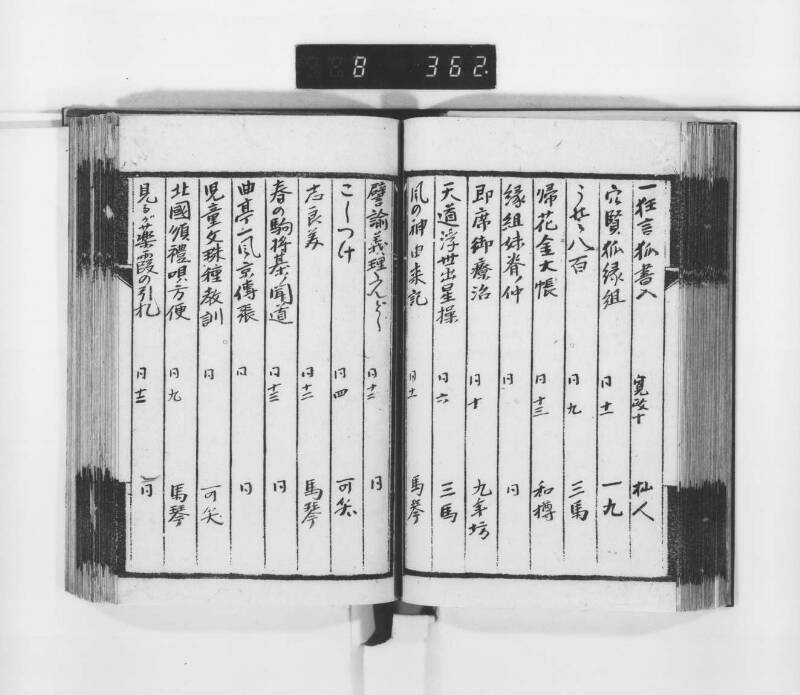 8 362
一狂言狐書入 寛政十 杣人
穴賢狐縁組 同十一 一九
うそ八百 同九 三馬
帰花金大帳 同十三 和樽
縁組妹脊ノ仲 同 同
即席御療治 同十 九年坊
天道浮世出星操 同六 三馬
風の神由来記 同十一 馬琴
譬諭義理 同十二 同
こじつけ 同四 可笑
志良美 同十二 馬琴
春の駒将棊ノ聞道 同十三 同
曲亭一風京傳張 同 同
児童文珠種教訓 同 可笑
北國順禮唄方便 同九 馬琴
見るが薬霞の引札 同十二 同